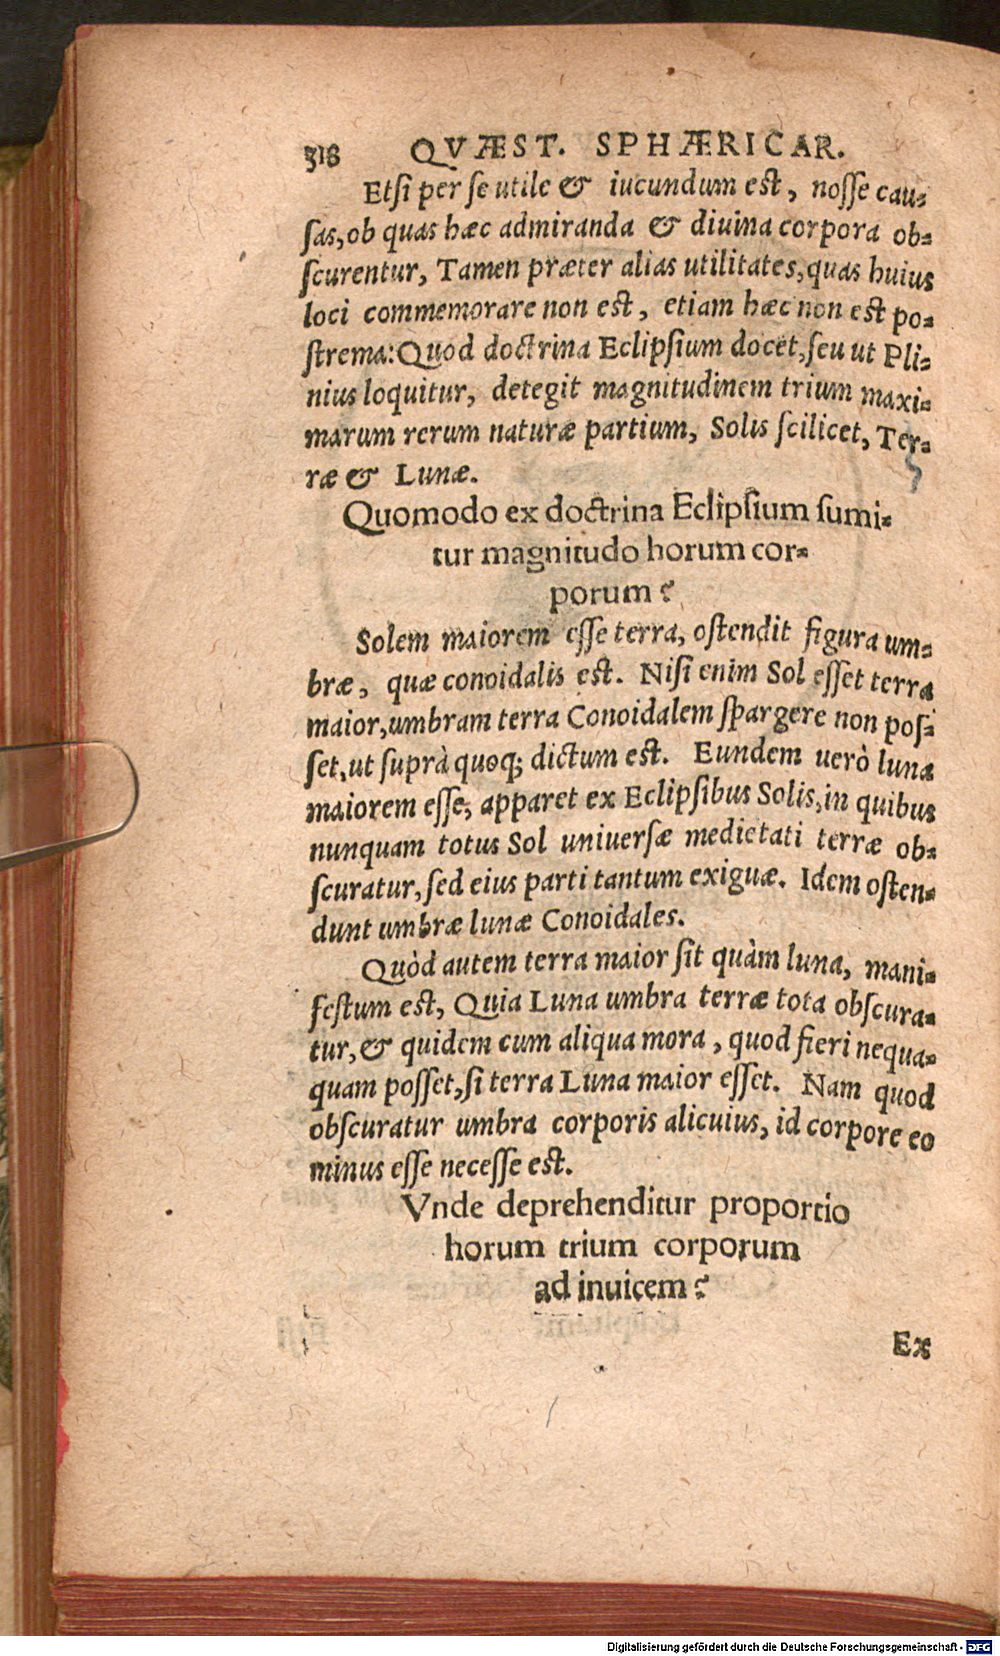 318 QVÆST. SPHÆRICAR.
Etſi per ſe utile & iucundum est, noſſe cau-
ſas, ob quas hæc admiranda & diuina corpora ob-
ſcurentur, Tamen præter alias utilitates, quas huius
loci commemorare non est, etiam hæc non est po-
ſtrema: Quod doctrina Eclipſium docet, ſeu ut Pli-
nius loquitur, detegit magnitudinem trium maxi-
marum rerum naturæ partium, Solis ſcilicet, Ter-
ræ & Lunæ.
Quomodo ex doctrina Eclipſium ſumi-
tur magnitudo horum cor-
porum?
Solem maiorem eſſe terra, oſtendit figura um-
bræ, quæ conoidalis est. Niſi enim Sol eſſet terra
maior, umbram terra Conoidalem ſpargere non poſ-
ſet, ut ſuprà quoq; dictum est. Eundem uerò luna
maiorem eſſe, apparet ex Eclipſibus Solis, in quibus
nunquam totus Sol uniuerſæ medietati terræ ob-
ſcuratur, ſed eius parti tantum exiguæ. Idem oſten-
dunt umbræ lunæ Conoidales.
Quòd autem terra maior ſit quàm luna, mani-
feſtum est, Quia Luna umbra terræ tota obſcura-
tur, & quidem cum aliqua mora, quod fieri nequa-
quam poſſet, ſi terra Luna maior eſſet. Nam quod
obſcuratur umbra corporis alicuius, id corpore eo
minus eſſe neceſſe est.
Vnde deprehenditur proportio
horum trium corporum
ad inuicem?
Ex
Digitalisierung gefördert durch die Deutsche Forschungsgemeinschaft - DFG